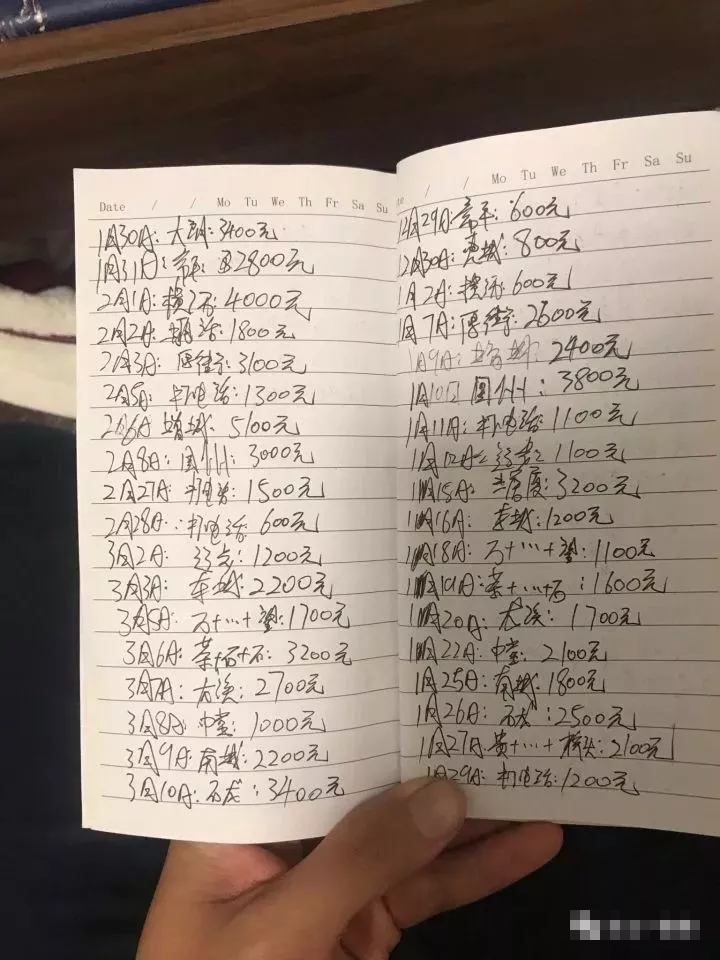 Date / / Mo Tu We Th Fr Sa Su
1月30日: 大朗: 3400元
1月31日: 常平: 2800元
2月1日: 横沥: 4000元
2月2日: 打电话: 1800元
2月3日: 厚街: 3100元
2月5日: 打电话: 1300元
2月6日 增城: 5100元
2月8日: 3000元
2月27日: 打电话: 1500元
2月28日: 打电话: 600元
3月2日: 1200元
3月3日: 东城: 2200元
3月5日: 万+…+望: 1700元
3月6日: 茶+石+石: 3200元
3月7日: 大溪: 2700元
3月8日: 中堂: 1000元
3月9日: 南城: 2200元
3月10日: 石龙: 3400元
/ / Mo Tu We Th Fr Sa Su
12月29日: 常平: 600元
12月30日: 莞城: 800元
1月2日: 横沥: 600元
1月7日: 厚街: 2600元
1月9日: 增城: 2400元
1月10日: 3800元
1月11日: 打电话: 1100元
1月12日: 1100元
1月15日: 3200元
1月16日: 东城: 1200元
1月18日: 万+…+望: 1100元
1月19日: 茶+…+石: 1600元
1月20日: 大溪: 1700元
1月22日: 中堂: 2100元
1月25日: 南城: 1800元
1月26日: 石龙: 2500元
1月27日 黄+…+桥头: 2100元
1月29日: 打电话: 1200元